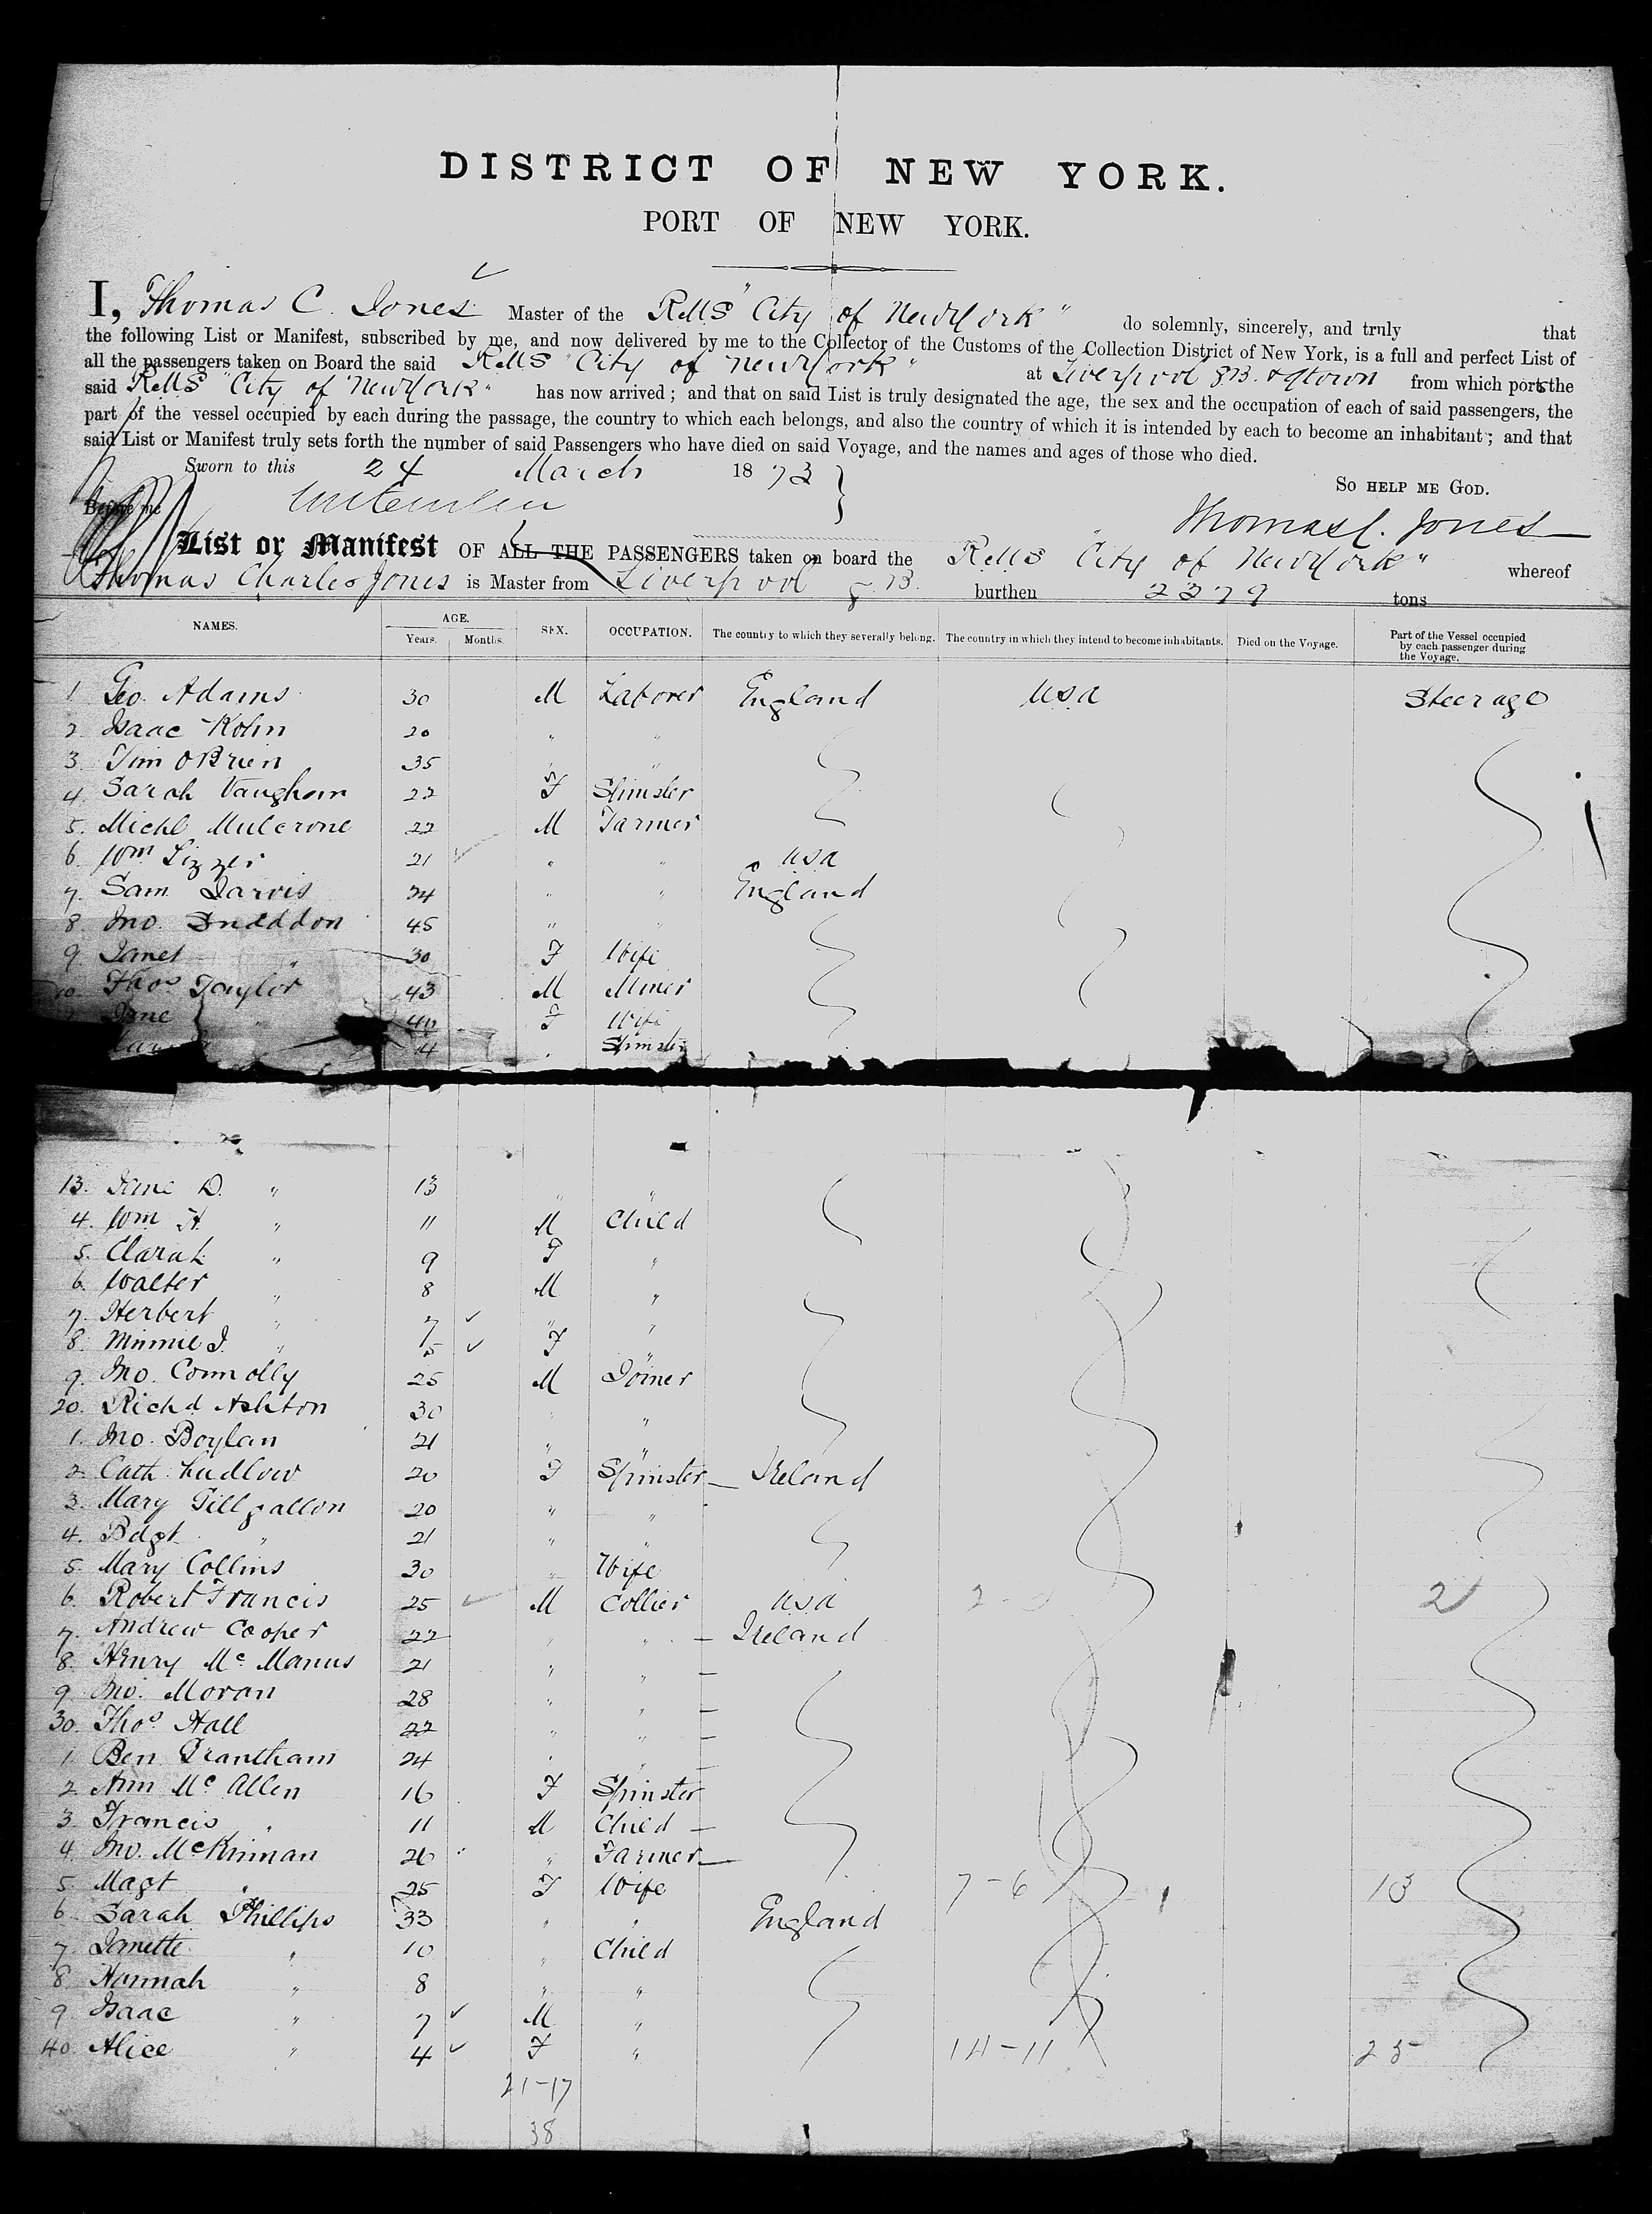 DISTRICT OF NEW YORK.
PORT OF NEW YORK.
I, Thomas C. Jones Master of the RMS "City of New York" do solemnly, sincerely, and truly that
the following List or Manifest, subscribed by me, and now delivered by me to the Collector of the Customs of the Collection District of New York, is a full and perfect List of
all the passengers taken on Board the said RMS "City of New York" at Liverpool GB. & Qtown from which ports the
said RMS "City of New York" has now arrived; and that on said List is truly designated the age, the sex and the occupation of each of said passengers, the
part of the vessel occupied by each during the passage, the country to which each belongs, and also the country of which it is intended by each to become an inhabitant; and that
said List or Manifest truly sets forth the number of said Passengers who have died on said Voyage, and the names and ages of those who died.
Sworn to this 24 March 1873
So HELP ME GOD.
Before me
Thomas C. Jones
List or Manifest OF ALL THE PASSENGERS taken on board the RMS "City of New York" whereof
Thomas Charles Jones is Master from Liverpool G.B. burthen 2379 tons
NAMES. AGE. Years. Months. SEX. OCCUPATION. The country to which they severally belong. The country in which they intend to become inhabitants. Died on the Voyage. Part of the Vessel occupied by each passenger during the Voyage.
1 Geo. Adams 30 M Laborer England USA Steerage
2. Isaac Kohn 20 " "
3. Tim O'Brien 35 " "
4. Sarah Vaughan 22 F Spinster
5. Michl 22 M Farmer
6. Wm 21 " " USA
7. Sam Jarvis 24 " " England
8. Jno. Sneddon 45 " "
9. Janet " 30 F Wife
10. Thos Taylor 43 M Miner
Jane " 40 F Wife
4 Spinster
13. Jane D. " 13 " "
4. Wm H. " 11 M Child
5. Clara " 9 F "
6. Walter " 8 M "
7. Herbert " 7 " "
8. Minnie J. " 5 F "
9. Jno. Connolly 25 M Joiner
20. Richd Ashton 30 " "
1. Jno. Boylan 21 " "
2. Cath. Ludlow 20 F Spinster Ireland
3. Mary Gillgallon 20 " "
4. Bdgt " 21 " "
5. Mary Collins 30 " Wife
6. Robert Francis 25 M Collier USA 2-0 2
7. Andrew Cooper 22 " " Ireland
8. Henry McManus 21 " "
9. Jno. Moran 28 " "
30. Thos Hall 22 " "
1. Ben Grantham 24 " "
2. Ann McAllen 16 F Spinster
3. Francis " 11 M Child
4. Jno. McKinnan 26 " Farmer
5. Magt " 25 F Wife 7-6 13
6. Sarah Phillips 33 " " England
7. Janette " 10 " Child
8. Hannah " 8 " "
9. Isaac " 7 M "
40. Alice " 4 F " 14-11 25
21-17
38